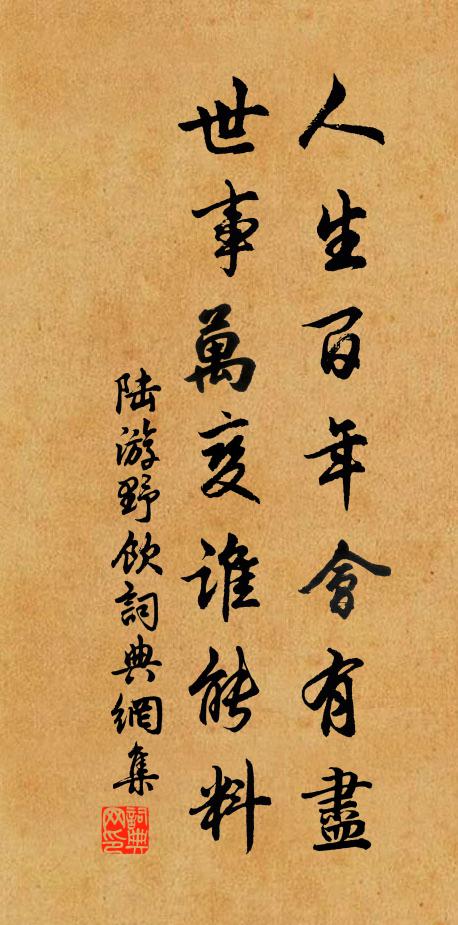 人生百年會有盡
世事萬变誰能料
陸游野飲詞典網集
詞典网印